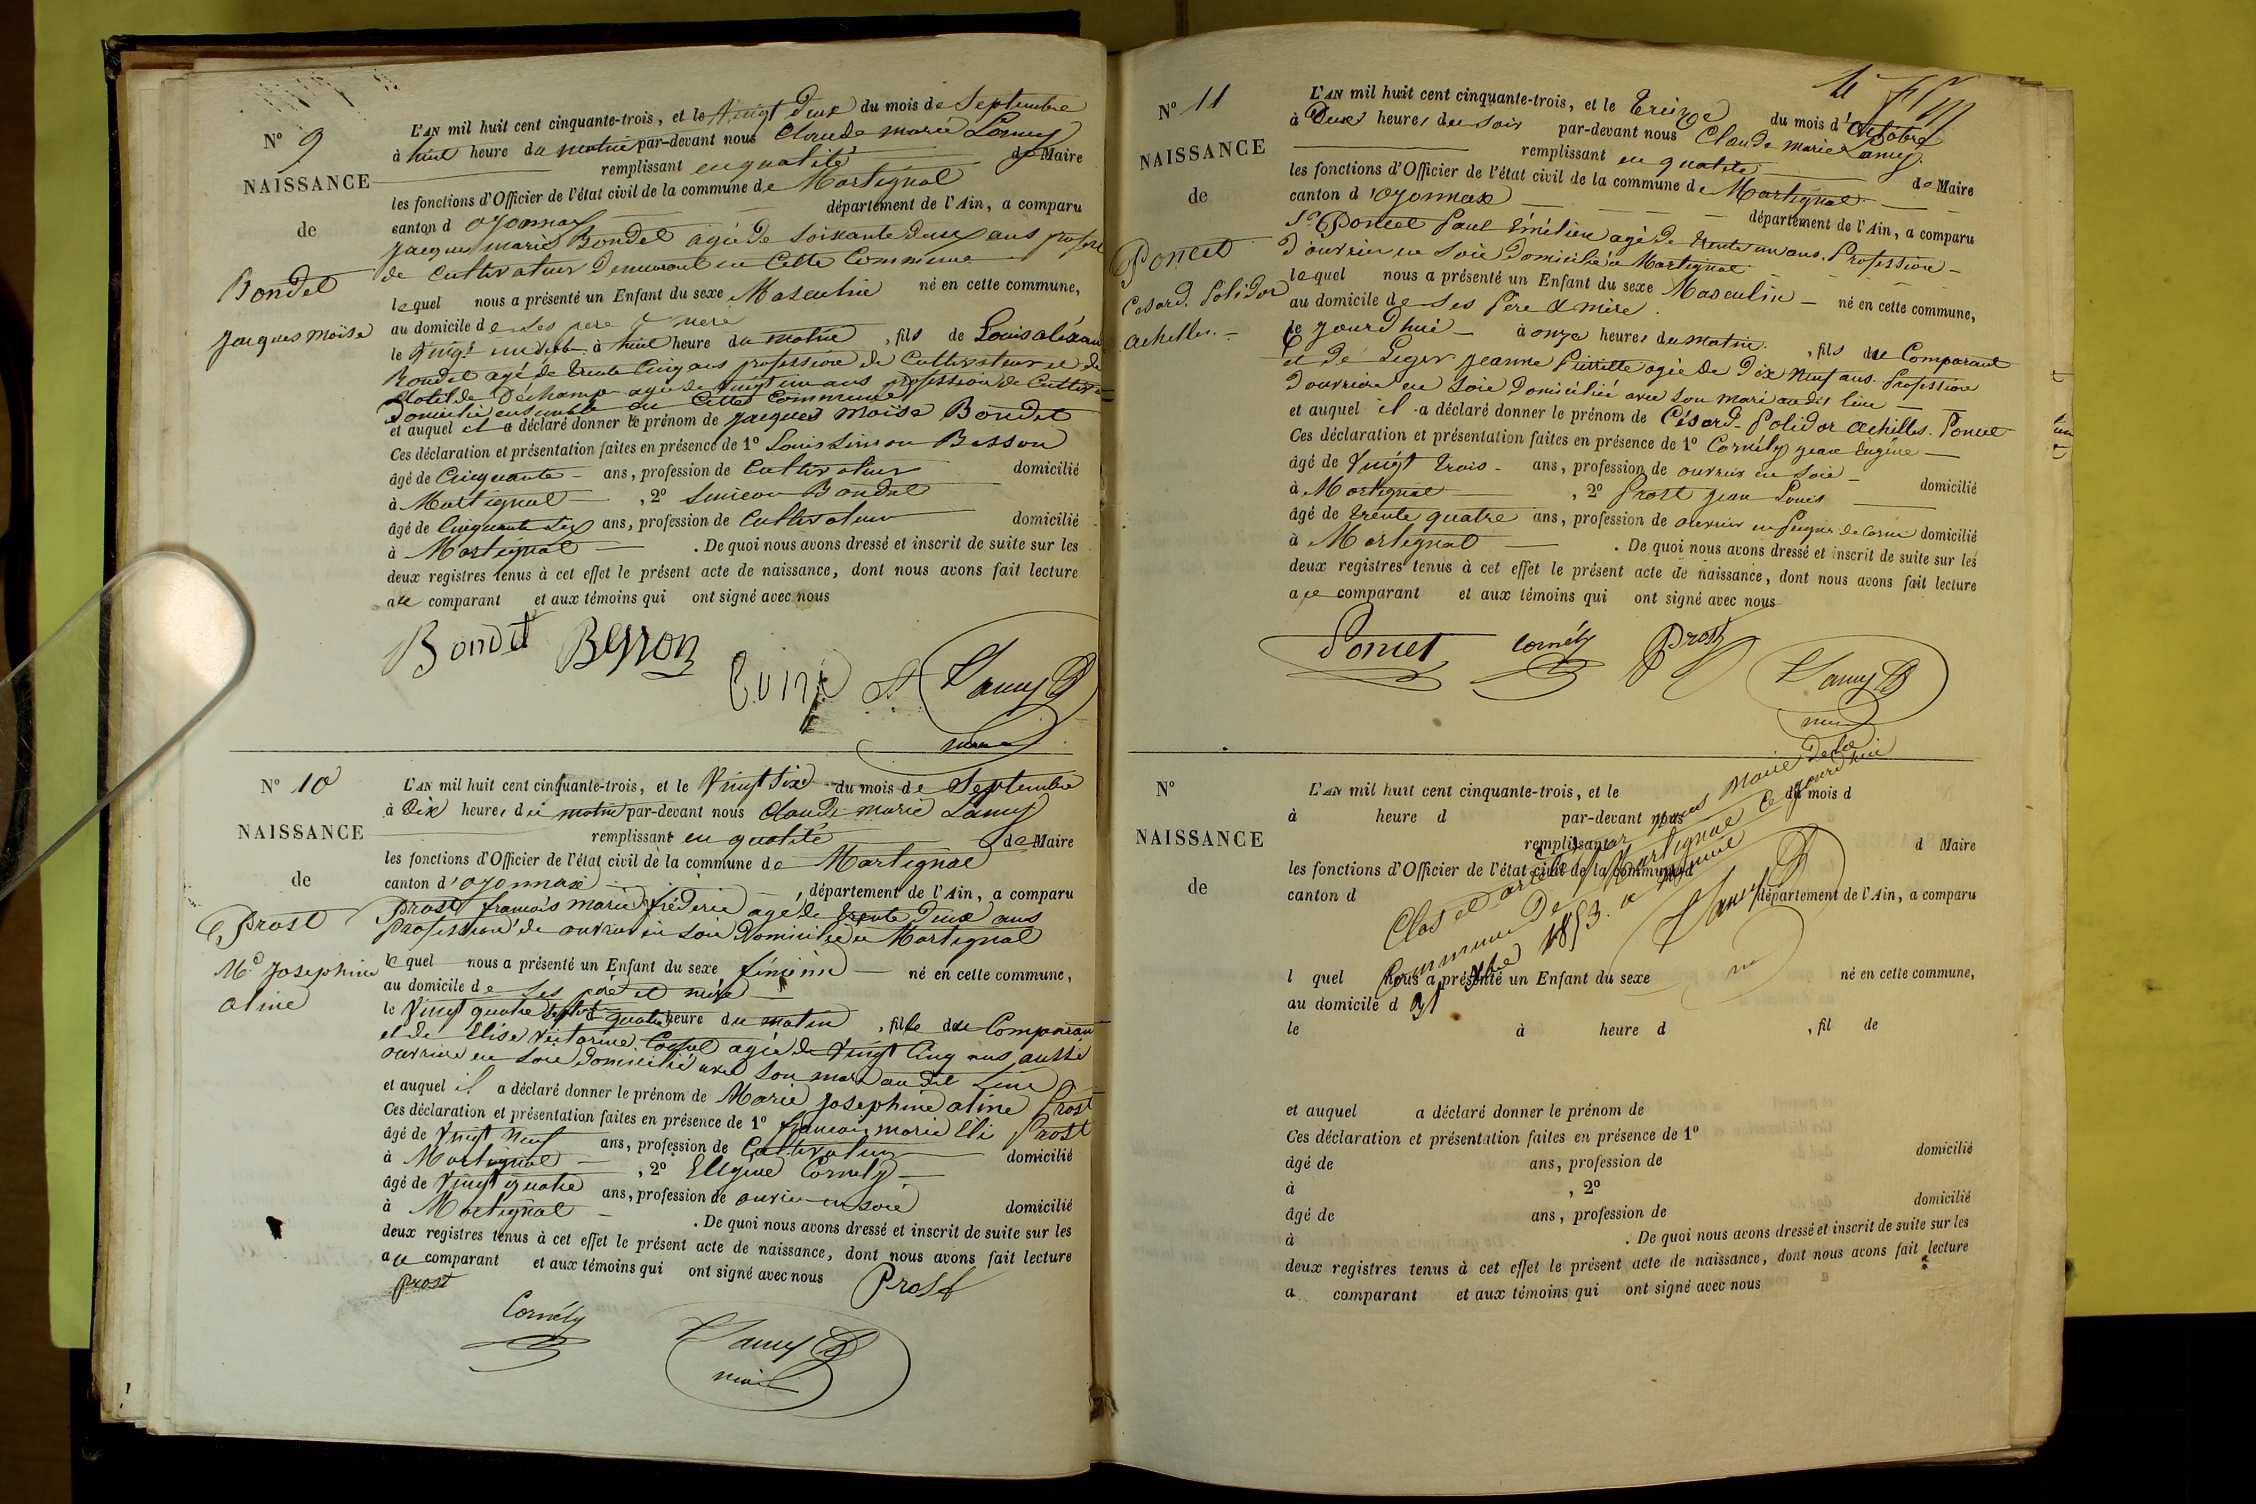 N° 9
NAISSANCE
de
Bondet
Jacques Moïse
L'AN mil huit cent cinquante-trois, et le Vingt Deux du mois de Septembre
à huit heure du matin par-devant nous Claude marie Lamy
remplissant en qualité de Maire
les fonctions d'Officier de l'état civil de la commune de Martignat
canton d oyonnax département de l'Ain, a comparu
Jacques marie Bondet agé de soixante deux ans profess
de Cultivateur Demeurant en Cette Commune
lequel nous a présenté un Enfant du sexe Masculin né en cette commune,
au domicile de ses père & mère
le Vingt un à huit heure du matin, fils de Louis aléxan
Bondet agé de trente Cinq ans profession de Cultivateur et de
Clotilde Déchamp agée de Vingt un ans profession de Cultiv
Domicilié ensemble en Cette Commune
et auquel il a déclaré donner le prénom de Jacques Moïse Bondet
Ces déclaration et présentation faites en présence de 1° Louis Besson
âgé de Cinquante ans, profession de Cultivateur domicilié
à Martignat, 2° Siméon Bondet
âgé de Cinquante Six ans, profession de Cultivateur domicilié
à Martignat. De quoi nous avons dressé et inscrit de suite sur les
deux registres tenus à cet effet le présent acte de naissance, dont nous avons fait lecture
au comparant et aux témoins qui ont signé avec nous
Bondet Besson
Lamy
maire
N° 10
NAISSANCE
de
Prost
Me Josephine
aline
L'AN mil huit cent cinquante-trois, et le Vingt Six du mois de Septembre
à Dix heures du matin par-devant nous Claude marie Lamy
remplissant en qualité de Maire
les fonctions d'Officier de l'état civil de la commune de Martignat
canton d'oyonnax, département de l'Ain, a comparu
Prost françois marie fréderic agé de trente Deux ans
Profession de ouvrier en soie Domicilié a Martignat
lequel nous a présenté un Enfant du sexe féminin né en cette commune,
au domicile de ses père et mère
le Vingt quatre à quatre heure du matin, fille du Comparant
et de Elise Victorine agée de Vingt Cinq ans aussi
ouvrière en soie Domicilié avec son mari au dit lieu
et auquel il a déclaré donner le prénom de Marie Josephine aline Prost
Ces déclaration et présentation faites en présence de 1° françois marie Eli Prost
âgé de Vingt Neuf ans, profession de Cultivateur domicilié
à Martignat, 2° Eugène Cornély
âgé de Vingt quatre ans, profession de ouvrier en soie domicilié
à Martignat. De quoi nous avons dressé et inscrit de suite sur les
deux registres tenus à cet effet le présent acte de naissance, dont nous avons fait lecture
au comparant et aux témoins qui ont signé avec nous
Prost Prost
Cornély
Lamy
maire
N° 11
NAISSANCE
de
Poncet
Césard. Polidor
achilles.
L'AN mil huit cent cinquante-trois, et le Treize du mois d'octobre
à Deux heures du soir par-devant nous Claude marie Lamy
remplissant en qualité de Maire
les fonctions d'Officier de l'état civil de la commune de Martignat
canton d'oyonnax département de l'Ain, a comparu
Sr Poncet Paul Emélien agé de trente un ans. Profession
D'ouvrier en soie Domicilié a Martignat
lequel nous a présenté un Enfant du sexe Masculin né en cette commune,
au domicile de ses Père & mère.
le jourd'hui à onze heures du matin. , fils du Comparant
et de Leger Jeanne agée de Dix Neuf ans. Profession
D'ouvrière en soie Domicilié avec son mari audit lieu
et auquel il a déclaré donner le prénom de Césard. Polidor achilles. Poncet
Ces déclaration et présentation faites en présence de 1° Cornély jean Eugène
âgé de Vingt trois ans, profession de ouvrier en soie domicilié
à Martignat, 2° Prost jean Louis
âgé de trente quatre ans, profession de ouvrier en Peigne de Corne domicilié
à Martignat. De quoi nous avons dressé et inscrit de suite sur les
deux registres tenus à cet effet le présent acte de naissance, dont nous avons fait lecture
au comparant et aux témoins qui ont signé avec nous
Poncet Cornély Prost
Lamy
maire
N°
NAISSANCE
de
L'AN mil huit cent cinquante-trois, et le du mois d
à heure d par-devant nous
remplissant d Maire
les fonctions d'Officier de l'état civil de la commune d
canton d département de l'Ain, a comparu
Clos et arrêté par nous Maire De la
Commune De Martignat Ce jourd'hui
31 xbre 1853. a
Lamy
l quel nous a présenté un Enfant du sexe né en cette commune,
au domicile d
le à heure d , fil de
et auquel a déclaré donner le prénom de
Ces déclaration et présentation faites en présence de 1°
âgé de ans, profession de domicilié
à , 2°
âgé de ans, profession de domicilié
à . De quoi nous avons dressé et inscrit de suite sur les
deux registres tenus à cet effet le présent acte de naissance, dont nous avons fait lecture
a comparant et aux témoins qui ont signé avec nous